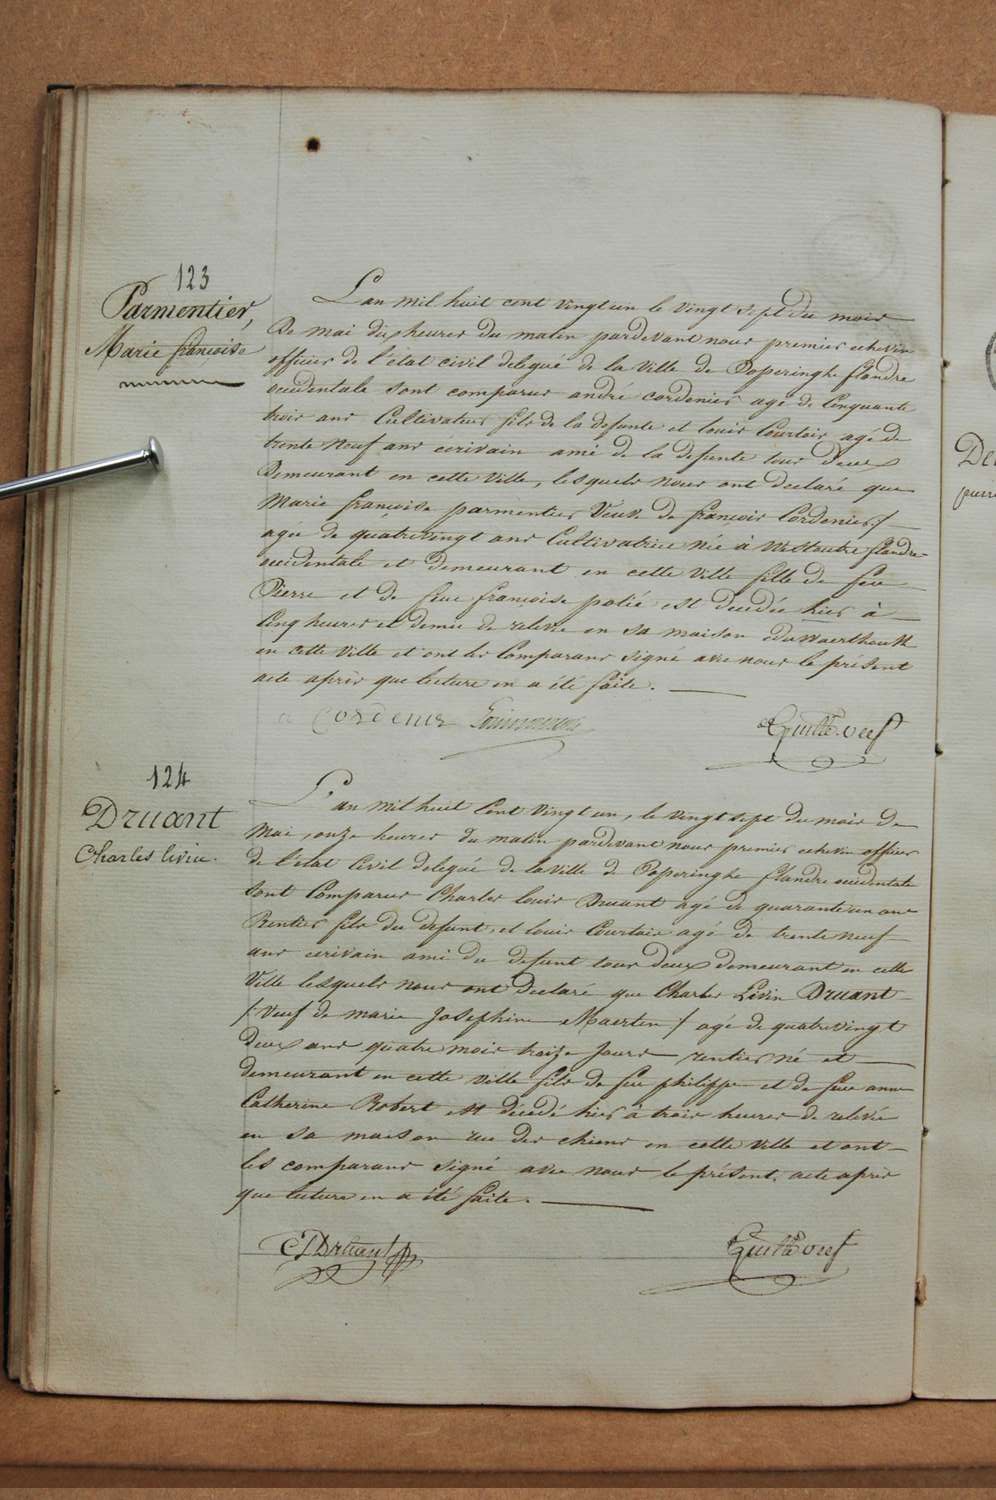 123
Parmentier,
Marie françoise
L'an mil huit cent vingt un le vingt sept du mois
De mai dix heures du matin pardevant nous premier echevin
officier de l'état civil delegué de la Ville de Poperinghe flandre
occidentale sont comparus andré cordenier agé de Cinquante
trois ans Cultivateur fils de la défunte et louis Courtois agé de
trente Neuf ans écrivain ami de la défunte tous deux
Demeurant en cette Ville, lesquels nous ont declaré que
Marie françoise parmentier Veuve de françois Cordenier /
agée de quatrevingt ans Cultivatrice née à Westoutre flandre
occidentale et demeurant en cette Ville fille de feu
Pierre et de feue françoise patié est decedée hier à
Cinq heures et demie de relevée en sa maison
en cette Ville et ont les Comparans signé avec nous le présent
acte après que lecture en a été faite.
a Cordenir
124
Druant
Charles livin.
L'an mil huit Cent Vingt un, le vingt sept du mois de
Mai, onze heures du matin pardevant nous premier echevin officier
de l'état Civil delegué de la Ville de Poperinghe flandre occidentale
sont Comparus Charles louis Druant agé de quarante un ans
Rentier fils du défunt, et louis Courtois agé de trente neuf
ans écrivain ami du défunt tous deux demeurant en cette
Ville lesquels nous ont declaré que Charles Livin Druant
/ Veuf de marie Josephine Maerten / agé de quatrevingt
deux ans quatre mois treize jours rentier né et
demeurant en cette Ville fils de feu philippe et de feue anne
Catherine Robert est décedé hier à trois heures de relevée
en sa maison rue des chiens en cette Ville et ont
les comparans signé avec nous le présent acte après
que lecture en a été faite.
CDruant